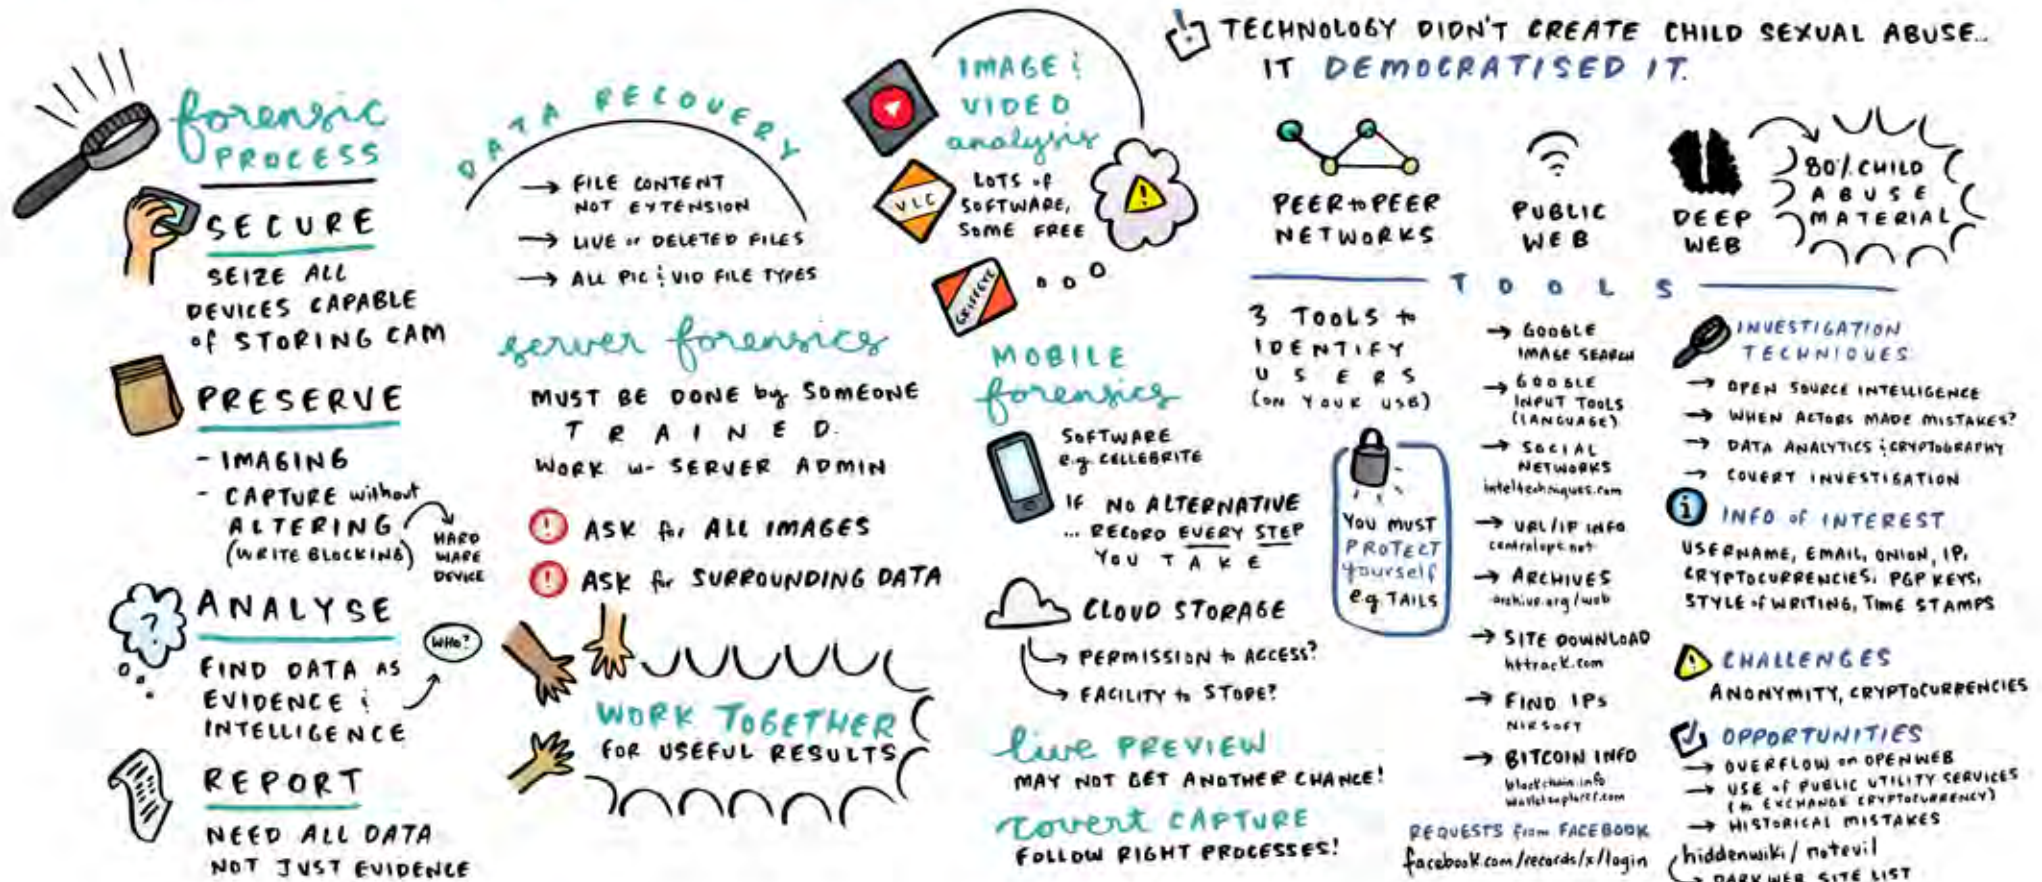 forensic
PROCESS
SECURE
SEIZE ALL
DEVICES CAPABLE
of STORING CAM
PRESERVE
- IMAGING
- CAPTURE without
ALTERING
(WRITE BLOCKING)
HARD
WARE
DEVICE
ANALYSE
?
WHO?
FIND DATA AS
EVIDENCE &
INTELLIGENCE
REPORT
NEED ALL DATA
NOT JUST EVIDENCE
DATA RECOVERY
→ FILE CONTENT
NOT EXTENSION
→ LIVE or DELETED FILES
→ ALL PIC & VID FILE TYPES
server forensics
MUST BE DONE by SOMEONE
TRAINED.
WORK w- SERVER ADMIN
! ASK for ALL IMAGES
! ASK for SURROUNDING DATA
WORK TOGETHER
FOR USEFUL RESULTS
IMAGE &
VIDEO
analysis
VLC
LOTS of
SOFTWARE,
SOME FREE
!
GRIFFEYE
MOBILE
forensics
SOFTWARE
e.g. CELLEBRITE
IF NO ALTERNATIVE
... RECORD EVERY STEP
YOU TAKE
CLOUD STORAGE
→ PERMISSION to ACCESS?
→ FACILITY to STORE?
live PREVIEW
MAY NOT GET ANOTHER CHANCE!
covert CAPTURE
FOLLOW RIGHT PROCESSES!
TECHNOLOGY DIDN'T CREATE CHILD SEXUAL ABUSE..
IT DEMOCRATISED IT.
PEER to PEER
NETWORKS
PUBLIC
WEB
DEEP
WEB
80% CHILD
ABUSE
MATERIAL
TOOLS
3 TOOLS to
IDENTIFY
USERS
(ON YOUR USB)
YOU MUST
PROTECT
yourself
e.g. TAILS
→ GOOGLE
IMAGE SEARCH
→ GOOGLE
INPUT TOOLS
(LANGUAGE)
→ SOCIAL
NETWORKS
inteltechniques.com
→ URL/IP INFO
centralops.net
→ ARCHIVES
archive.org/web
→ SITE DOWNLOAD
httrack.com
→ FIND IPs
NIRSOFT
→ BITCOIN INFO
blockchain.info
walletexplorer.com
REQUESTS from FACEBOOK
facebook.com/records/x/login
INVESTIGATION
TECHNIQUES
→ OPEN SOURCE INTELLIGENCE
→ WHEN ACTORS MADE MISTAKES?
→ DATA ANALYTICS & CRYPTOGRAPHY
→ COVERT INVESTIGATION
i INFO of INTEREST
USERNAME, EMAIL, ONION, IP,
CRYPTOCURRENCIES, PGP KEYS,
STYLE of WRITING, TIME STAMPS
! CHALLENGES
ANONYMITY, CRYPTOCURRENCIES
OPPORTUNITIES
→ OVERFLOW on OPENWEB
→ USE of PUBLIC UTILITY SERVICES
(to EXCHANGE CRYPTOCURRENCY)
→ HISTORICAL MISTAKES
hiddenwiki / notevil
→ DARK WEB SITE LIST